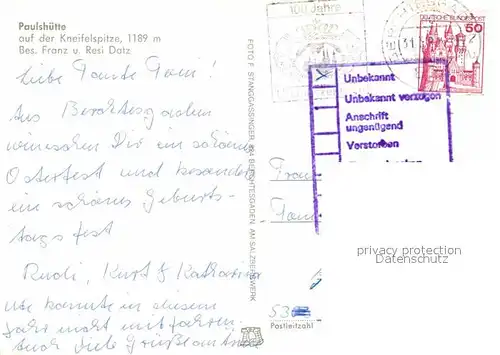 Paulshütte
auf der Kneifelspitze, 1189 m
Bes. Franz u. Resi Datz
Liebe Tante
Aus Berchtesgaden
wünschen Dir ein schönes
Osterfest und besonders
ein schönes Geburts-
tagsfest
Rudi, Kurt & Katharina
Ute konnte in diesem
Jahr nicht mit fahren
Auch viele Grüße an
FOTO F. STANGGASSINGER, BERCHTESGADEN AM SALZBERGWERK
100 Jahre
DEUTSCHE BUNDESPOST
50
Unbekannt
Unbekannt verzogen
Anschrift
ungenügend
Verstorben
Frau
53
Postleitzahl
privacy protection
Datenschutz